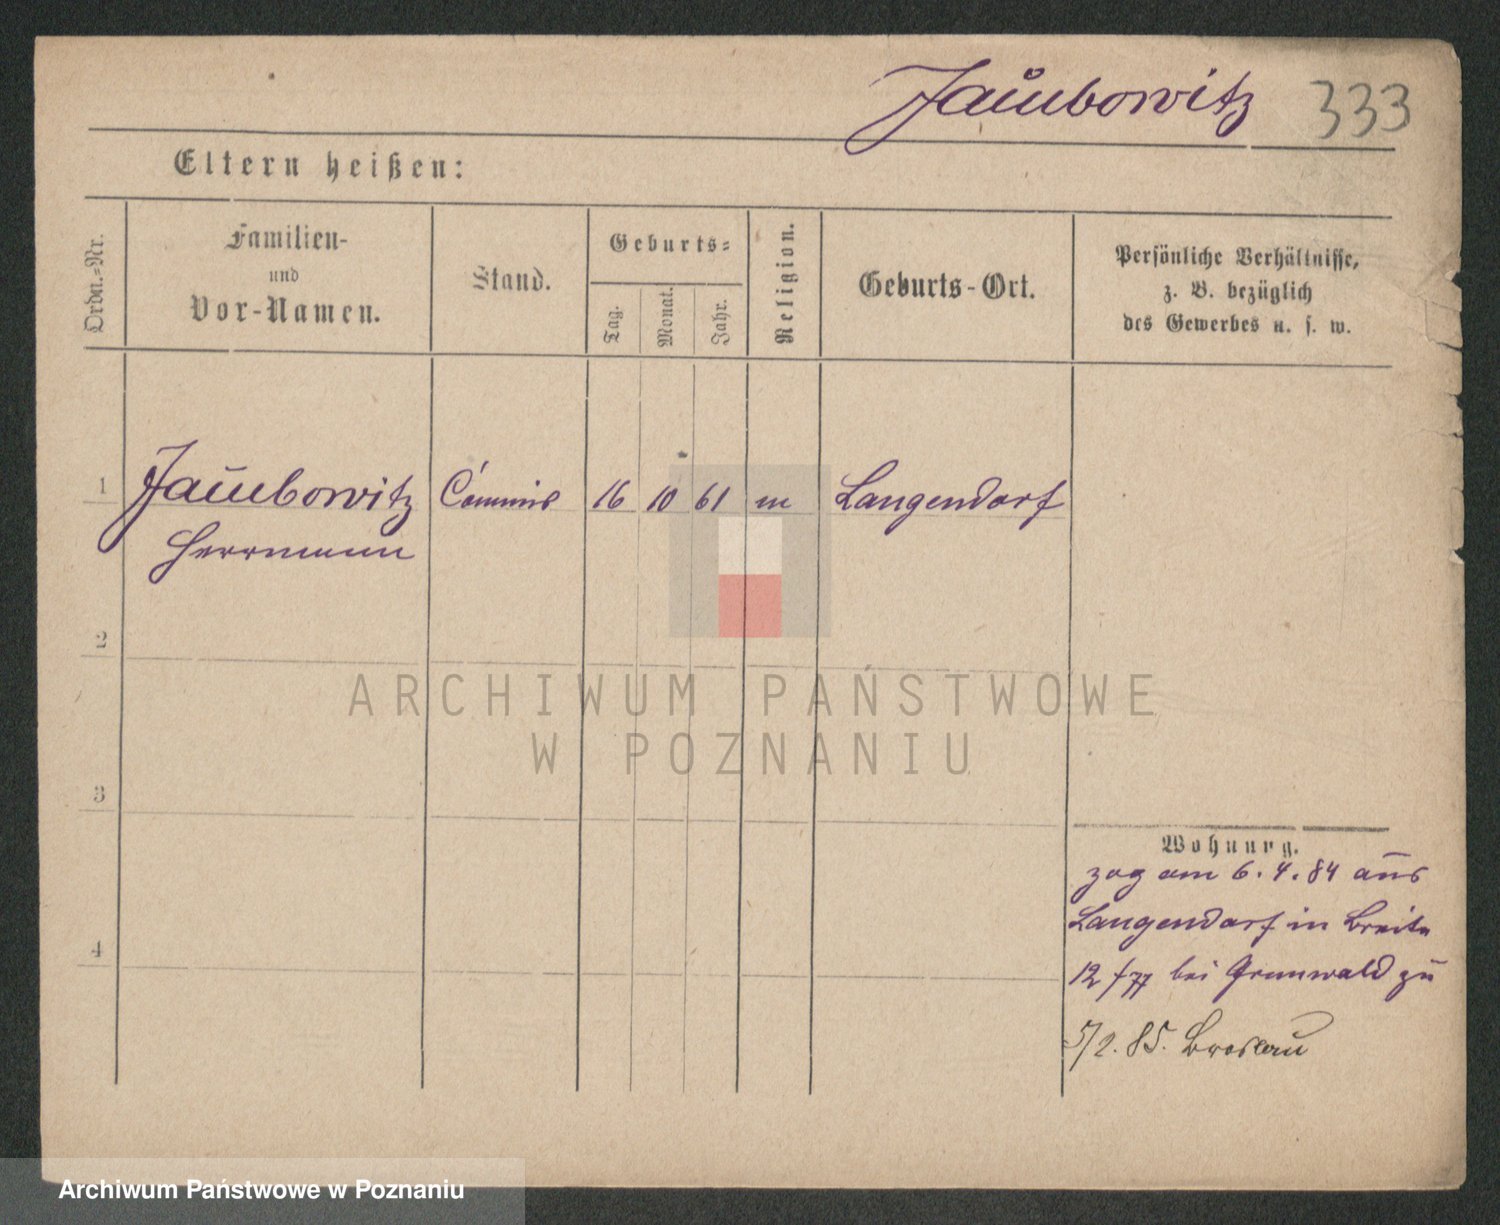 Jaůbowitz 333
Eltern heißen:
Ordn.=Nr.
Familien-
und
Vor-Namen.
Stand.
Geburts=
Tag.
Monat.
Jahr.
Religion.
Geburts-Ort.
Persönliche Verhältnisse,
z. B. bezüglich
des Gewerbes u. s. w.
1 Commis 16 10 61 m Langendorf
Herrmann
2
3
4
Wohnung.
zog am 6. 4. 84 aus
Langendorf in Breite
12/77 bei Grunwald zu
5/2. 85. Breslau
ARCHIWUM PAŃSTWOWE
W POZNANIU
Archiwum Państwowe w Poznaniu